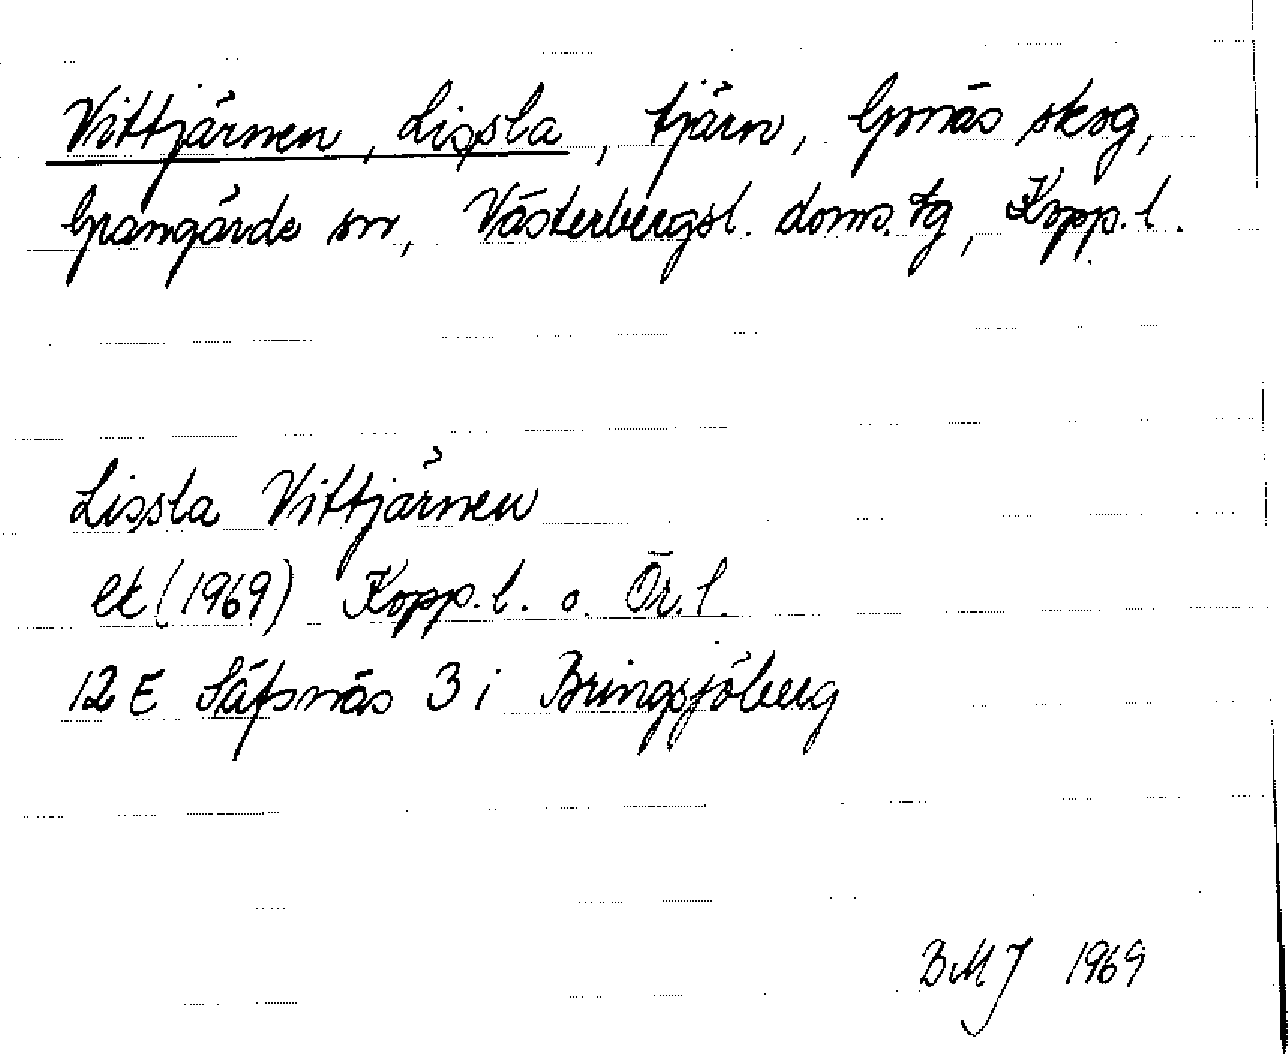 Vittjärnen, Lissla, tjärn, Gonäs skog,
Grangärde sn, Västerbergsl. doms. tg, Kopp. l.
Lissla Vittjärnen
ek (1969) Kopp. l. o. Ör. l.
12 E Säfsnäs 3 i Bringsjöberg
BMJ 1969